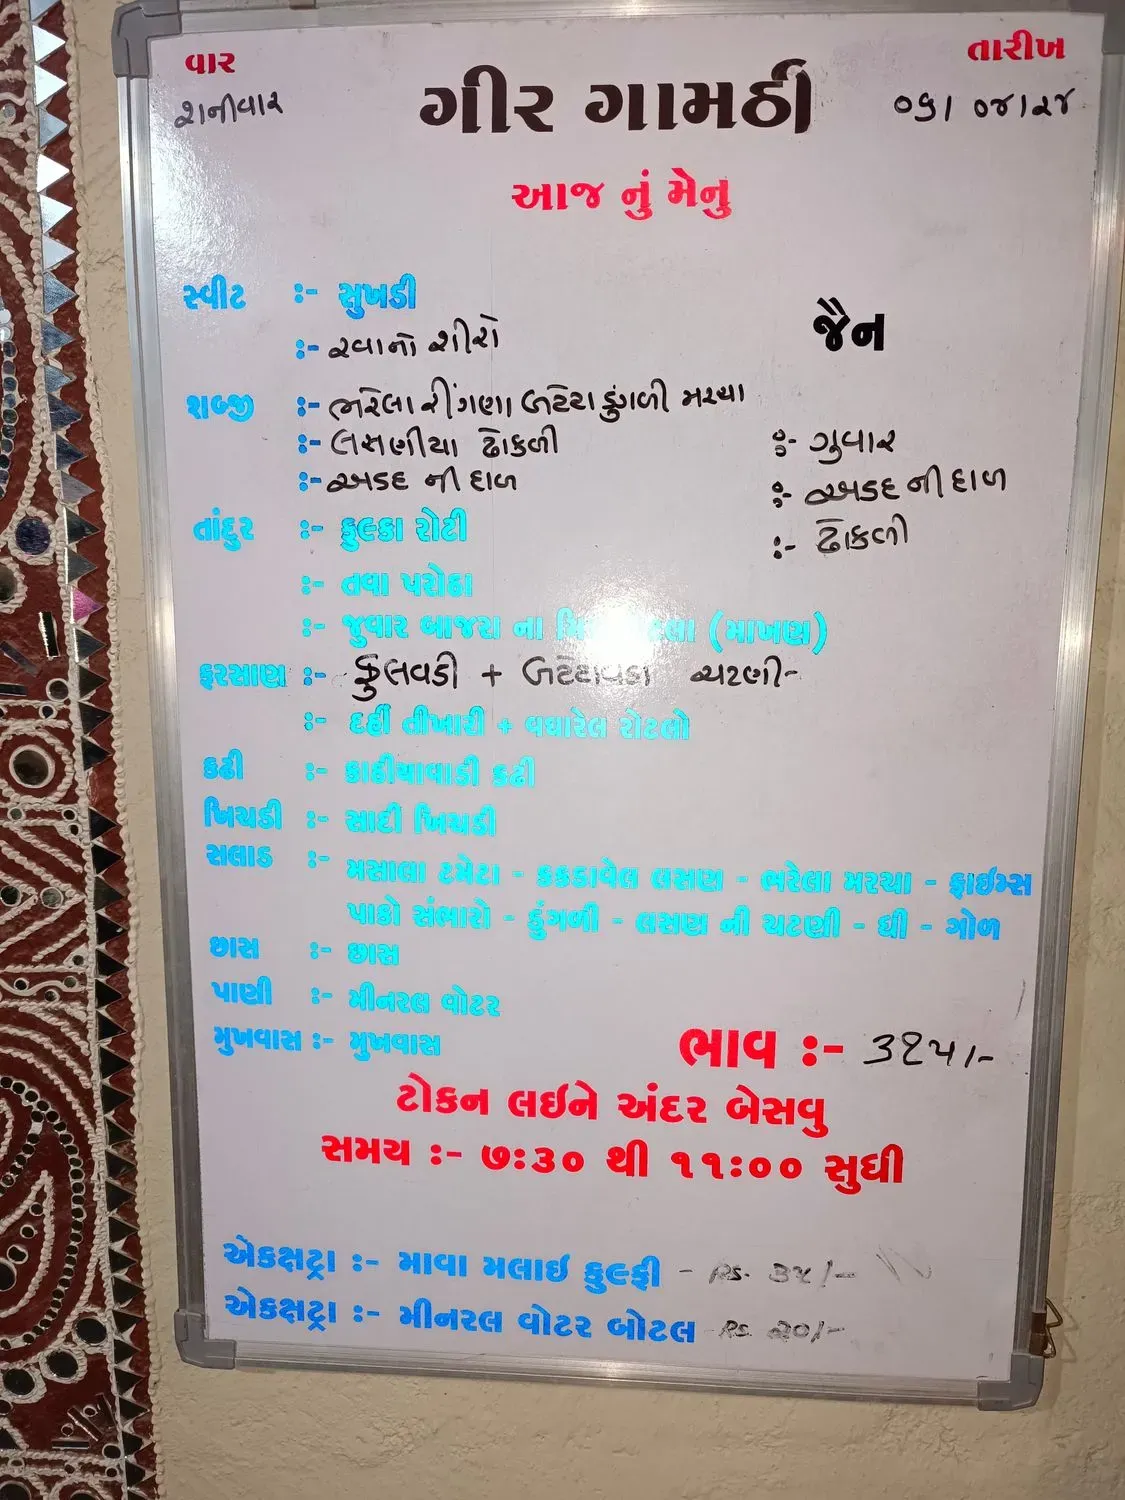 વાર
તારીખ
શનીવાર
ગીર ગામઠી
૦૬/ ૦૪/૨૪
આજ નું મેનુ
સ્વીટ :- સુખડી
:- રવાનો શીરો
જૈન
શબ્જી :- ભરેલા રીંગણા બટેટા ડુંગળી મરચા
:- લસણીયા ઢોકળી
:- ગુવાર
:- અડદ ની દાળ
:- અડદ ની દાળ
તાંદુર :- ફુલ્કા રોટી
:- ઢોકળી
:- તવા પરોઠા
:- જુવાર બાજરા ના (માખણ)
ફરસાણ :- ફુલવડી + બટેટાવડા ચટણી-
:- દહીં તીખારી + વઘારેલ રોટલો
કઢી :- કાઠીયાવાડી કઢી
ખિચડી :- સાદી ખિચડી
સલાડ :- મસાલા ટમેટા - કકડાવેલ લસણ - ભરેલા મરચા - ફ્રાઇમ્સ
પાકો સંભારો - ડુંગળી - લસણ ની ચટણી - ઘી - ગોળ
છાસ :- છાસ
પાણી :- મીનરલ વોટર
મુખવાસ :- મુખવાસ
ભાવ :- ૩૨૫/-
ટોકન લઇને અંદર બેસવુ
સમય :- ૭:૩૦ થી ૧૧:૦૦ સુધી
એકક્ષટ્રા :- માવા મલાઇ કુલ્ફી - Rs. ૩૫/-
એકક્ષટ્રા :- મીનરલ વોટર બોટલ Rs. ૨૦/-